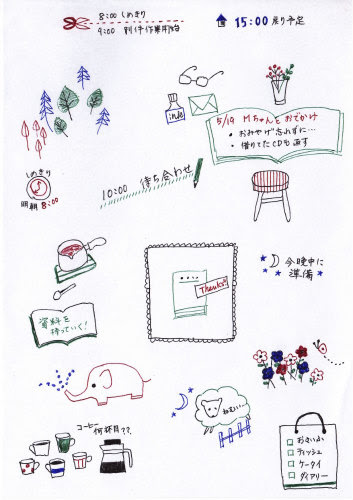 8:00 しめきり
9:00 別件作業開始
15:00 戻り予定
ink
5/19 Mちゃんとおでかけ
・おみやげ忘れずに…
・借りてたCDも返す
しめきり
明朝 8:00
10:00 待ち合わせ
今晩中に
準備
Thanks!
資料を
持っていく!
ねむい…
コーヒー
何杯目??
おさいふ
ティッシュ
ケータイ
ダイアリー